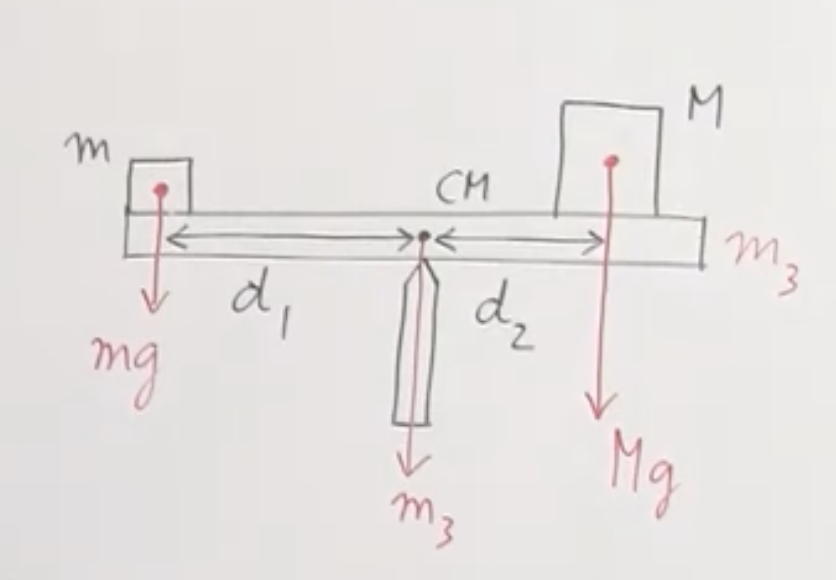 M
m
CM
m₃
d₁
d₂
mg
Mg
m₃